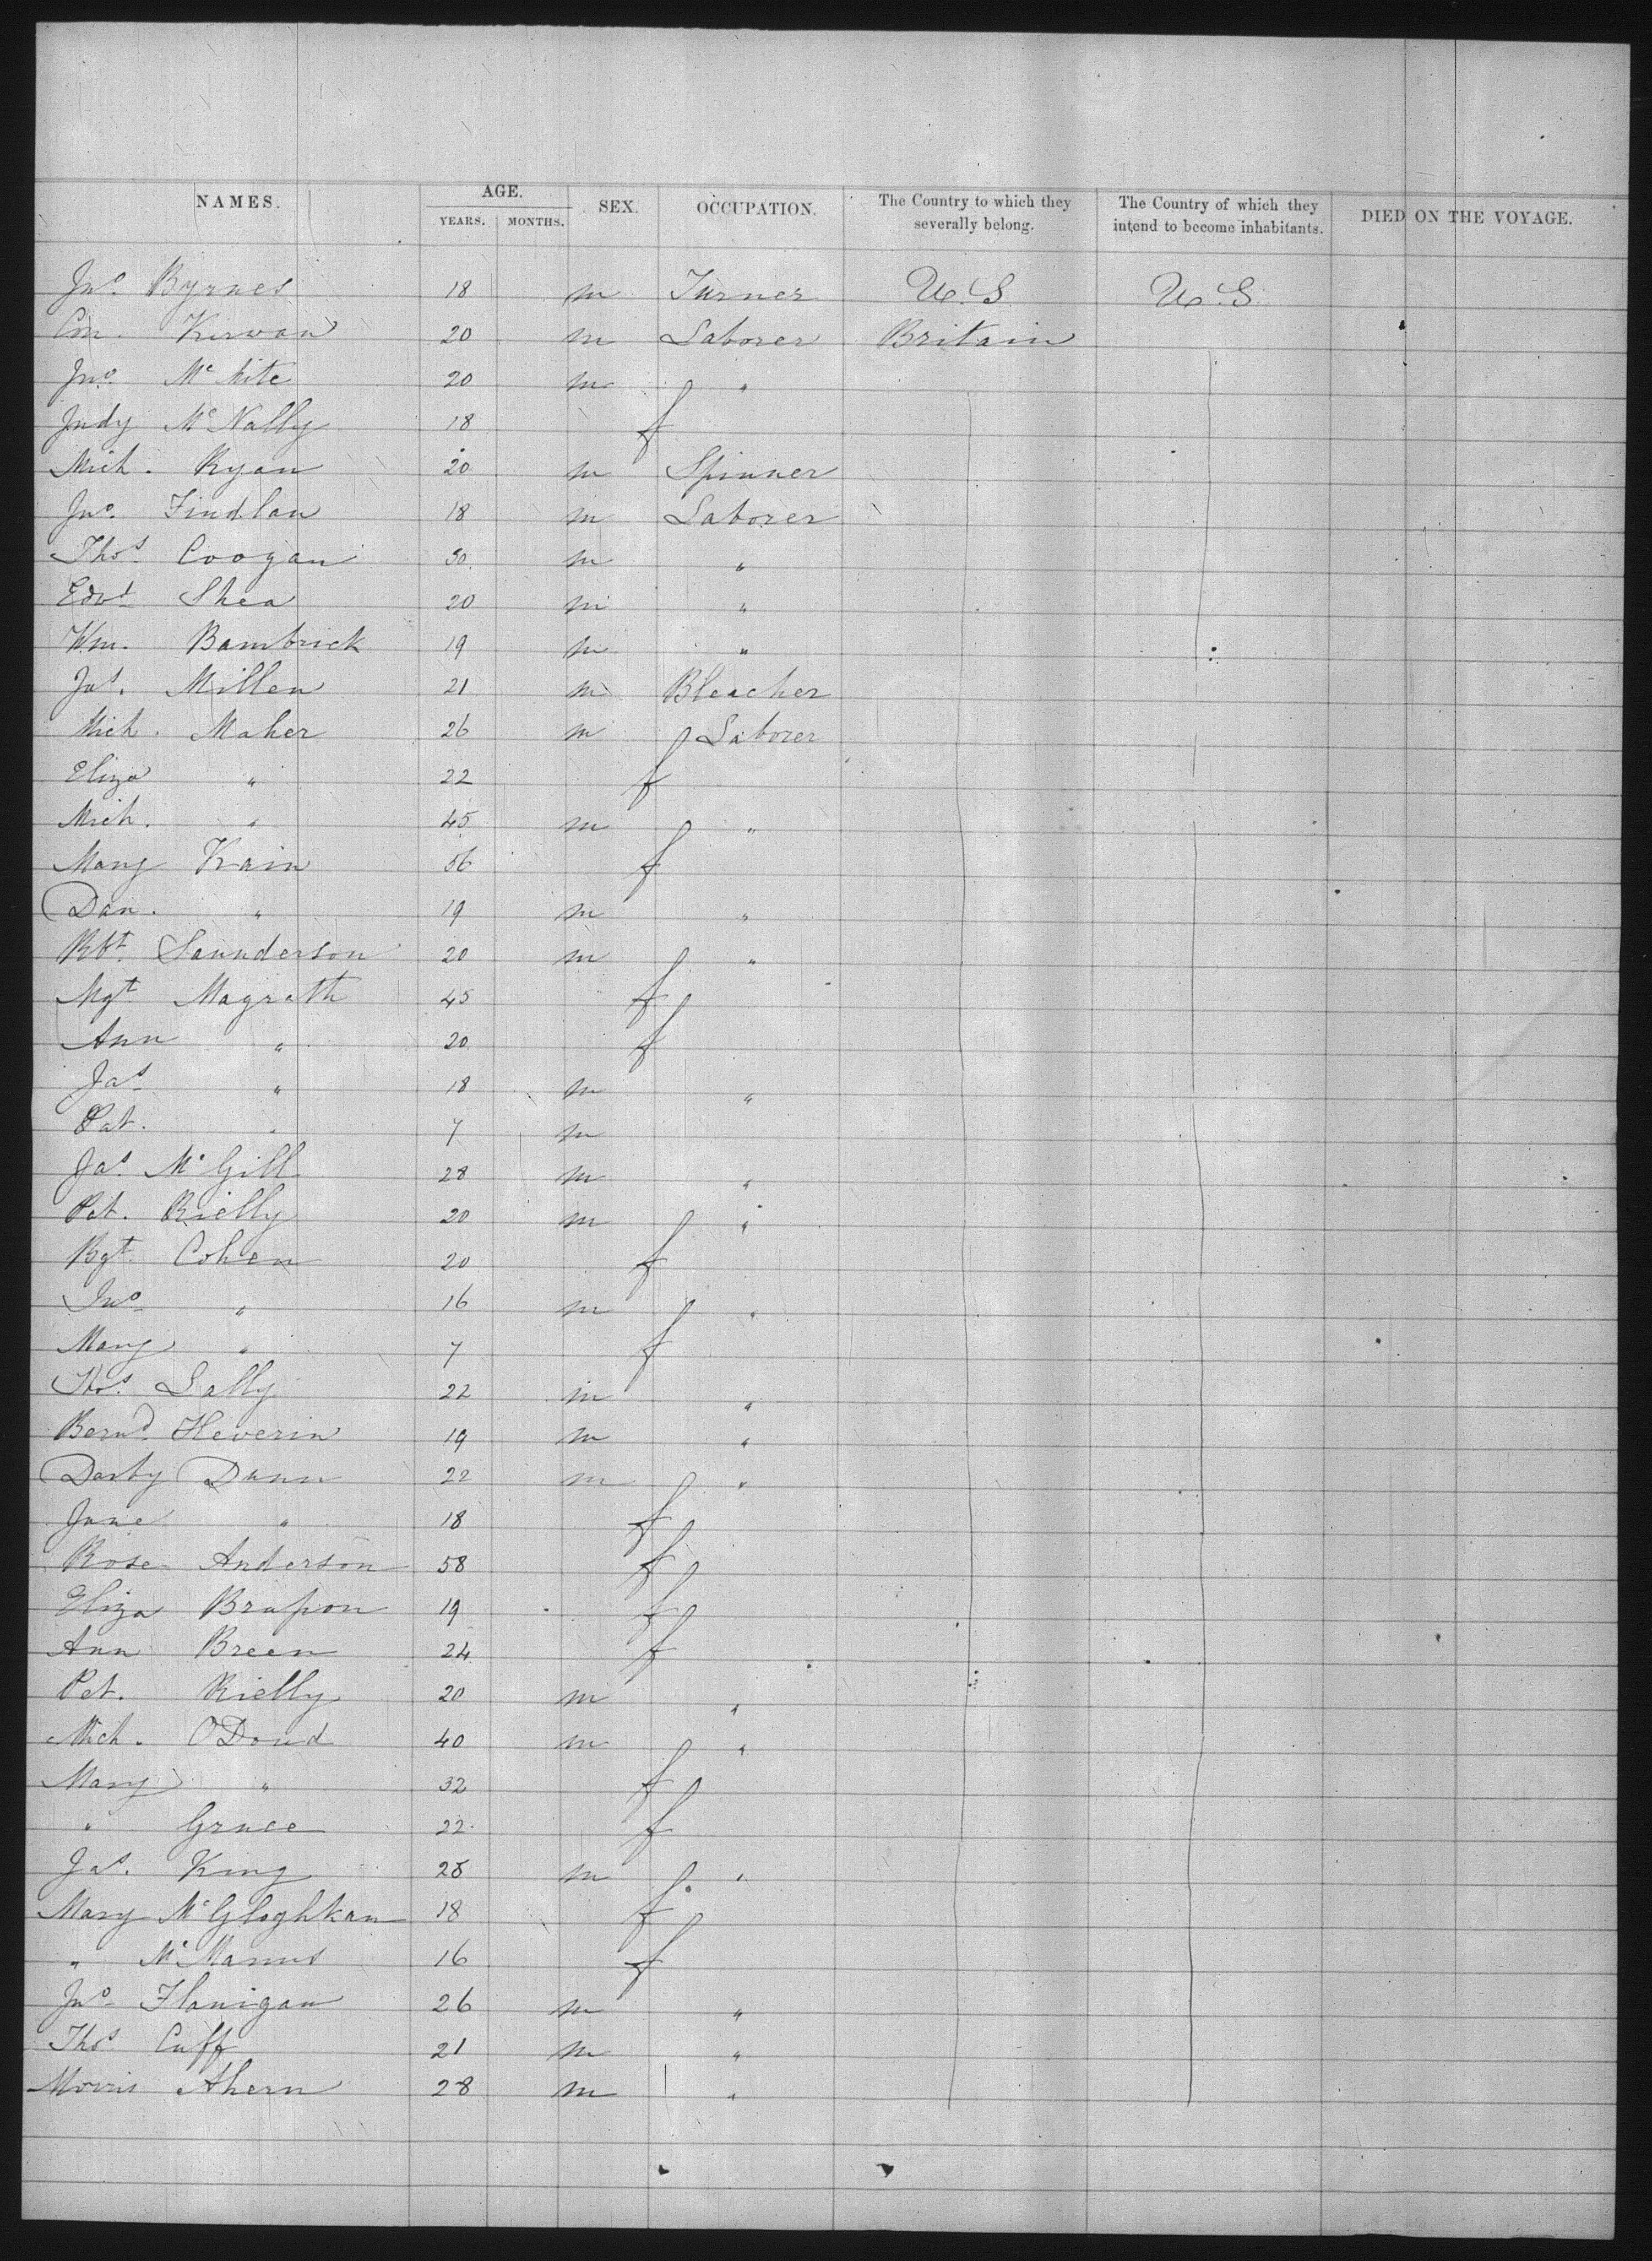 NAMES. AGE. SEX. OCCUPATION. The Country to which they severally belong. The Country of which they intend to become inhabitants. DIED ON THE VOYAGE.
YEARS. MONTHS.
Jno. Byrnes 18 m Turner U.S. U.S.
Con. Kirwan 20 m Laborer Britain
Jno. 20 m "
Judy McNally 18 f
Mich. Ryan 20 m Spinner
Jno. Findlan 18 m Laborer
Thos. Coogan 30 m "
Edwd Shea 20 m "
Wm. Bambrick 19 m "
Jas. Millen 21 m Bleacher
Mich. Maher 26 m Laborer
Eliza " 22 f
Mich. " 45 m "
Mary Kain 56 f
Dan. " 19 m "
Rbt. Saunderson 20 m "
Mgt Magrath 45 f
Ann " 20 f
Jas " 18 m "
Pat. " 7 m
Jas. McGill 28 m "
Pat. Rielly 20 m "
Bgt. Cohen 20 f
Jno " 16 m "
Mary " 7 f
Thos. Lally 22 m "
Bernd. Heverin 19 m "
Darby Dunn 22 m "
Jane " 18 f
Rose Anderson 58 f
Eliza 19 f
Ann Breen 24 f
Pet. Rielly 20 m "
Mich. O'Doud 40 m "
Mary " 32 f
" Grace 22 f
Jas. King 25 m "
Mary McGloghkan 18 f
" McManus 16 f
Jno Flanigan 26 m "
Thos Cuff 21 m "
Morris Ahern 28 m "